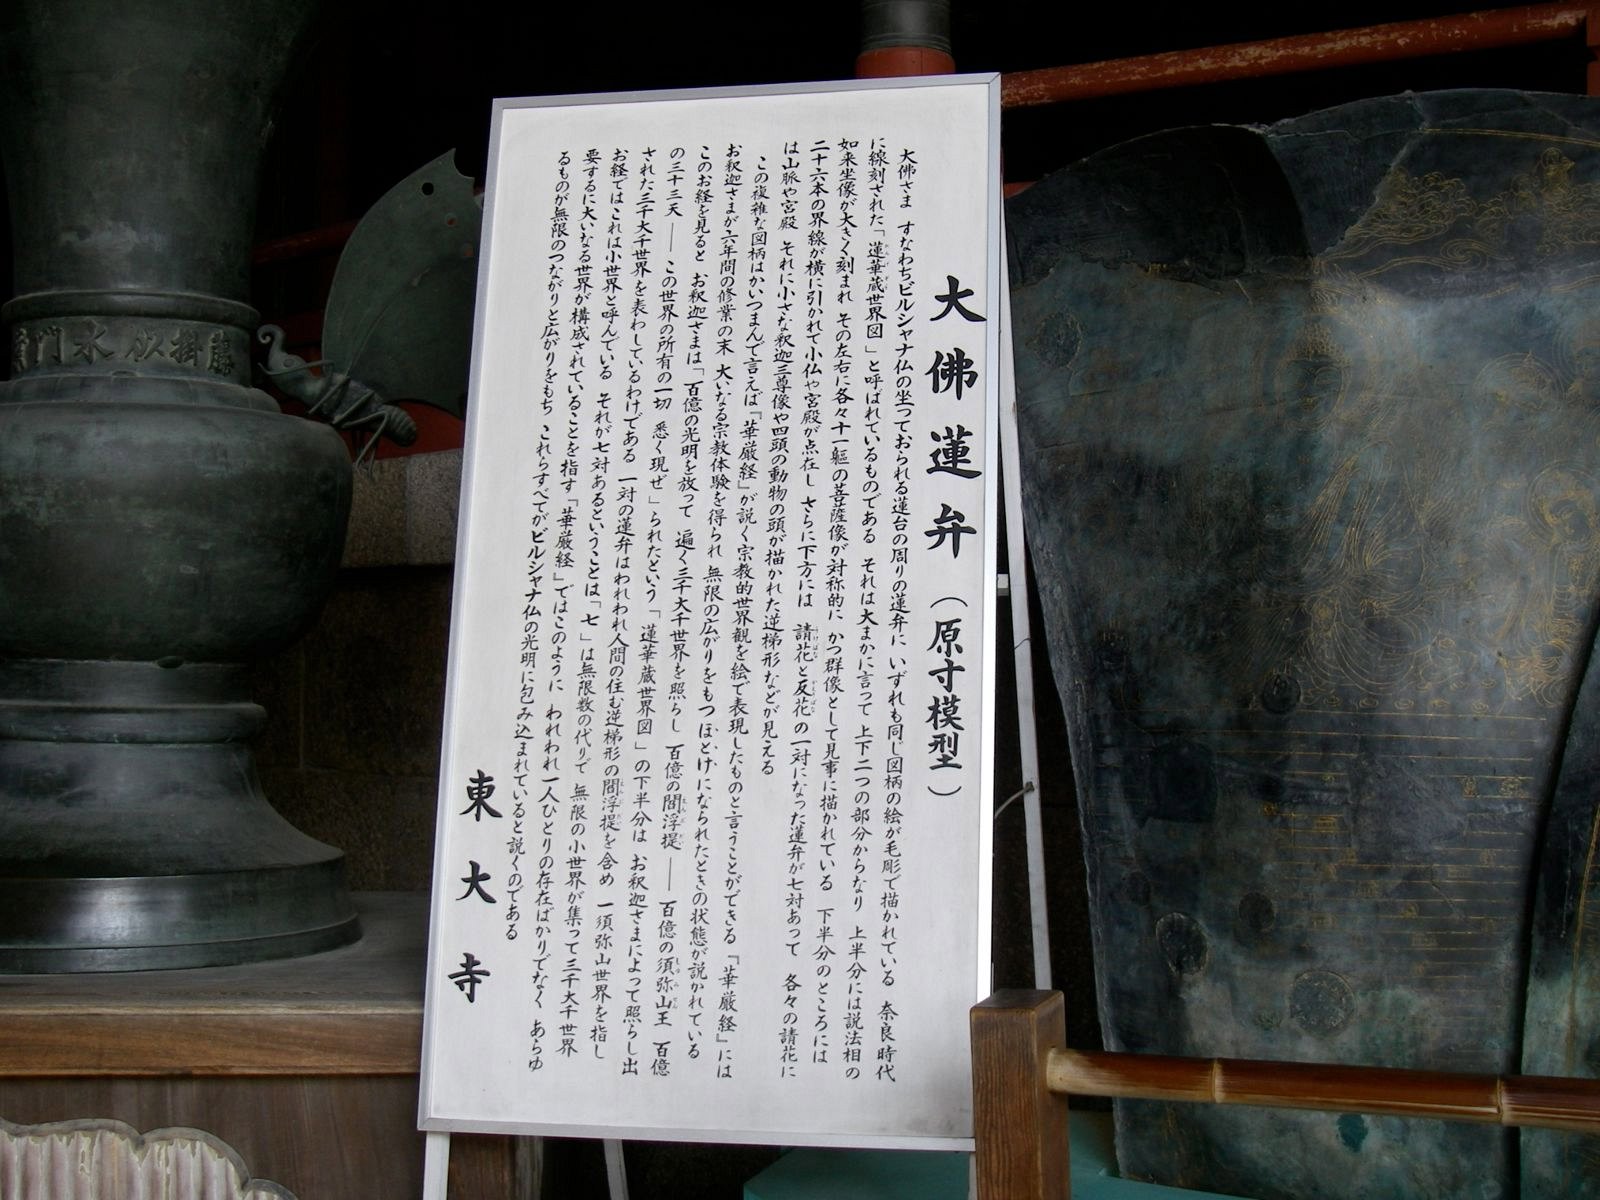 大佛蓮弁（原寸模型）
大佛さま　すなわちビルシャナ仏の坐っておられる蓮台の周りの蓮弁に　いずれも同じ図柄の絵が毛彫で描かれている　奈良時代
に線刻された「蓮華蔵世界図」と呼ばれているものである　それは大まかに言って　上下二つの部分からなり　上半分には説法相の
如来坐像が大きく刻まれ　その左右に各々十一軀の菩薩像が対称的に　かつ群像として見事に描かれている　下半分のところには
二十六本の界線が横に引かれて小仏や宮殿が点在し　さらに下方には　請花と反花の一対になった蓮弁が七対あって　各々の請花に
は山脈や宮殿　それに小さな釈迦三尊像や四頭の動物の頭が描かれた逆梯形などが見える
この複雑な図柄はかいつまんで言えば『華厳経』が説く宗教的世界観を絵で表現したものと言うことができる『華厳経』には
お釈迦さまが六年間の修業の末　大いなる宗教体験を得られ　無限の広がりをもつほとけになられたときの状態が説かれている
このお経を見ると　お釈迦さまは「百億の光明を放って　遍く三千大千世界を照らし　百億の閻浮提――百億の須弥山王　百億
の三十三天――この世界の所有の一切　悉く現ぜ」られたという「蓮華蔵世界図」の下半分は　お釈迦さまによって照らし出
された三千大千世界を表わしているわけである　一対の蓮弁はわれわれ人間の住む逆梯形の閻浮提を含め　一須弥山世界を指し
お経ではこれは小世界と呼んでいる　それが七対あるということは「七」は無限数の代りで　無限の小世界が集って三千大千世界
要するに大いなる世界が構成されていることを指す『華厳経』ではこのように　われわれ一人ひとりの存在ばかりでなく　あらゆ
るものが無限のつながりと広がりをもち　これらすべてがビルシャナ仏の光明に包み込まれていると説くのである
東大寺